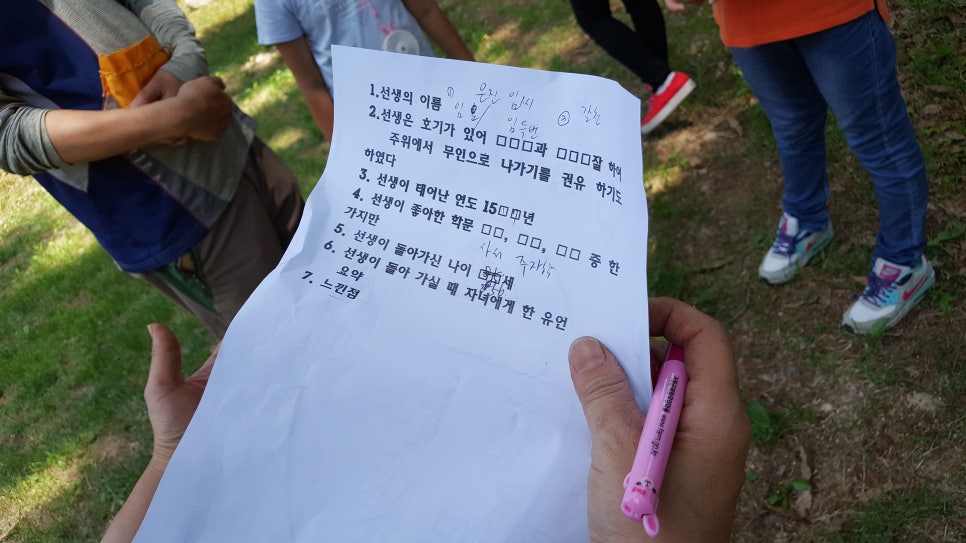 1.선생의 이름 ① 은진 임시 ② 갈천
임훈 임득번
2.선생은 호기가 있어 □□□과 □□□잘 하여
주위에서 무인으로 나가기를 권유 하기도
하였다
3. 선생이 태어난 연도 15□□년
4. 선생이 좋아한 학문 □□, □□, □□ 중 한
가지만
사서 주자학
5. 선생이 돌아가신 나이 □□세
6. 선생이 돌아 가실 때 자녀에게 한 유언
요약
7. 느낀점